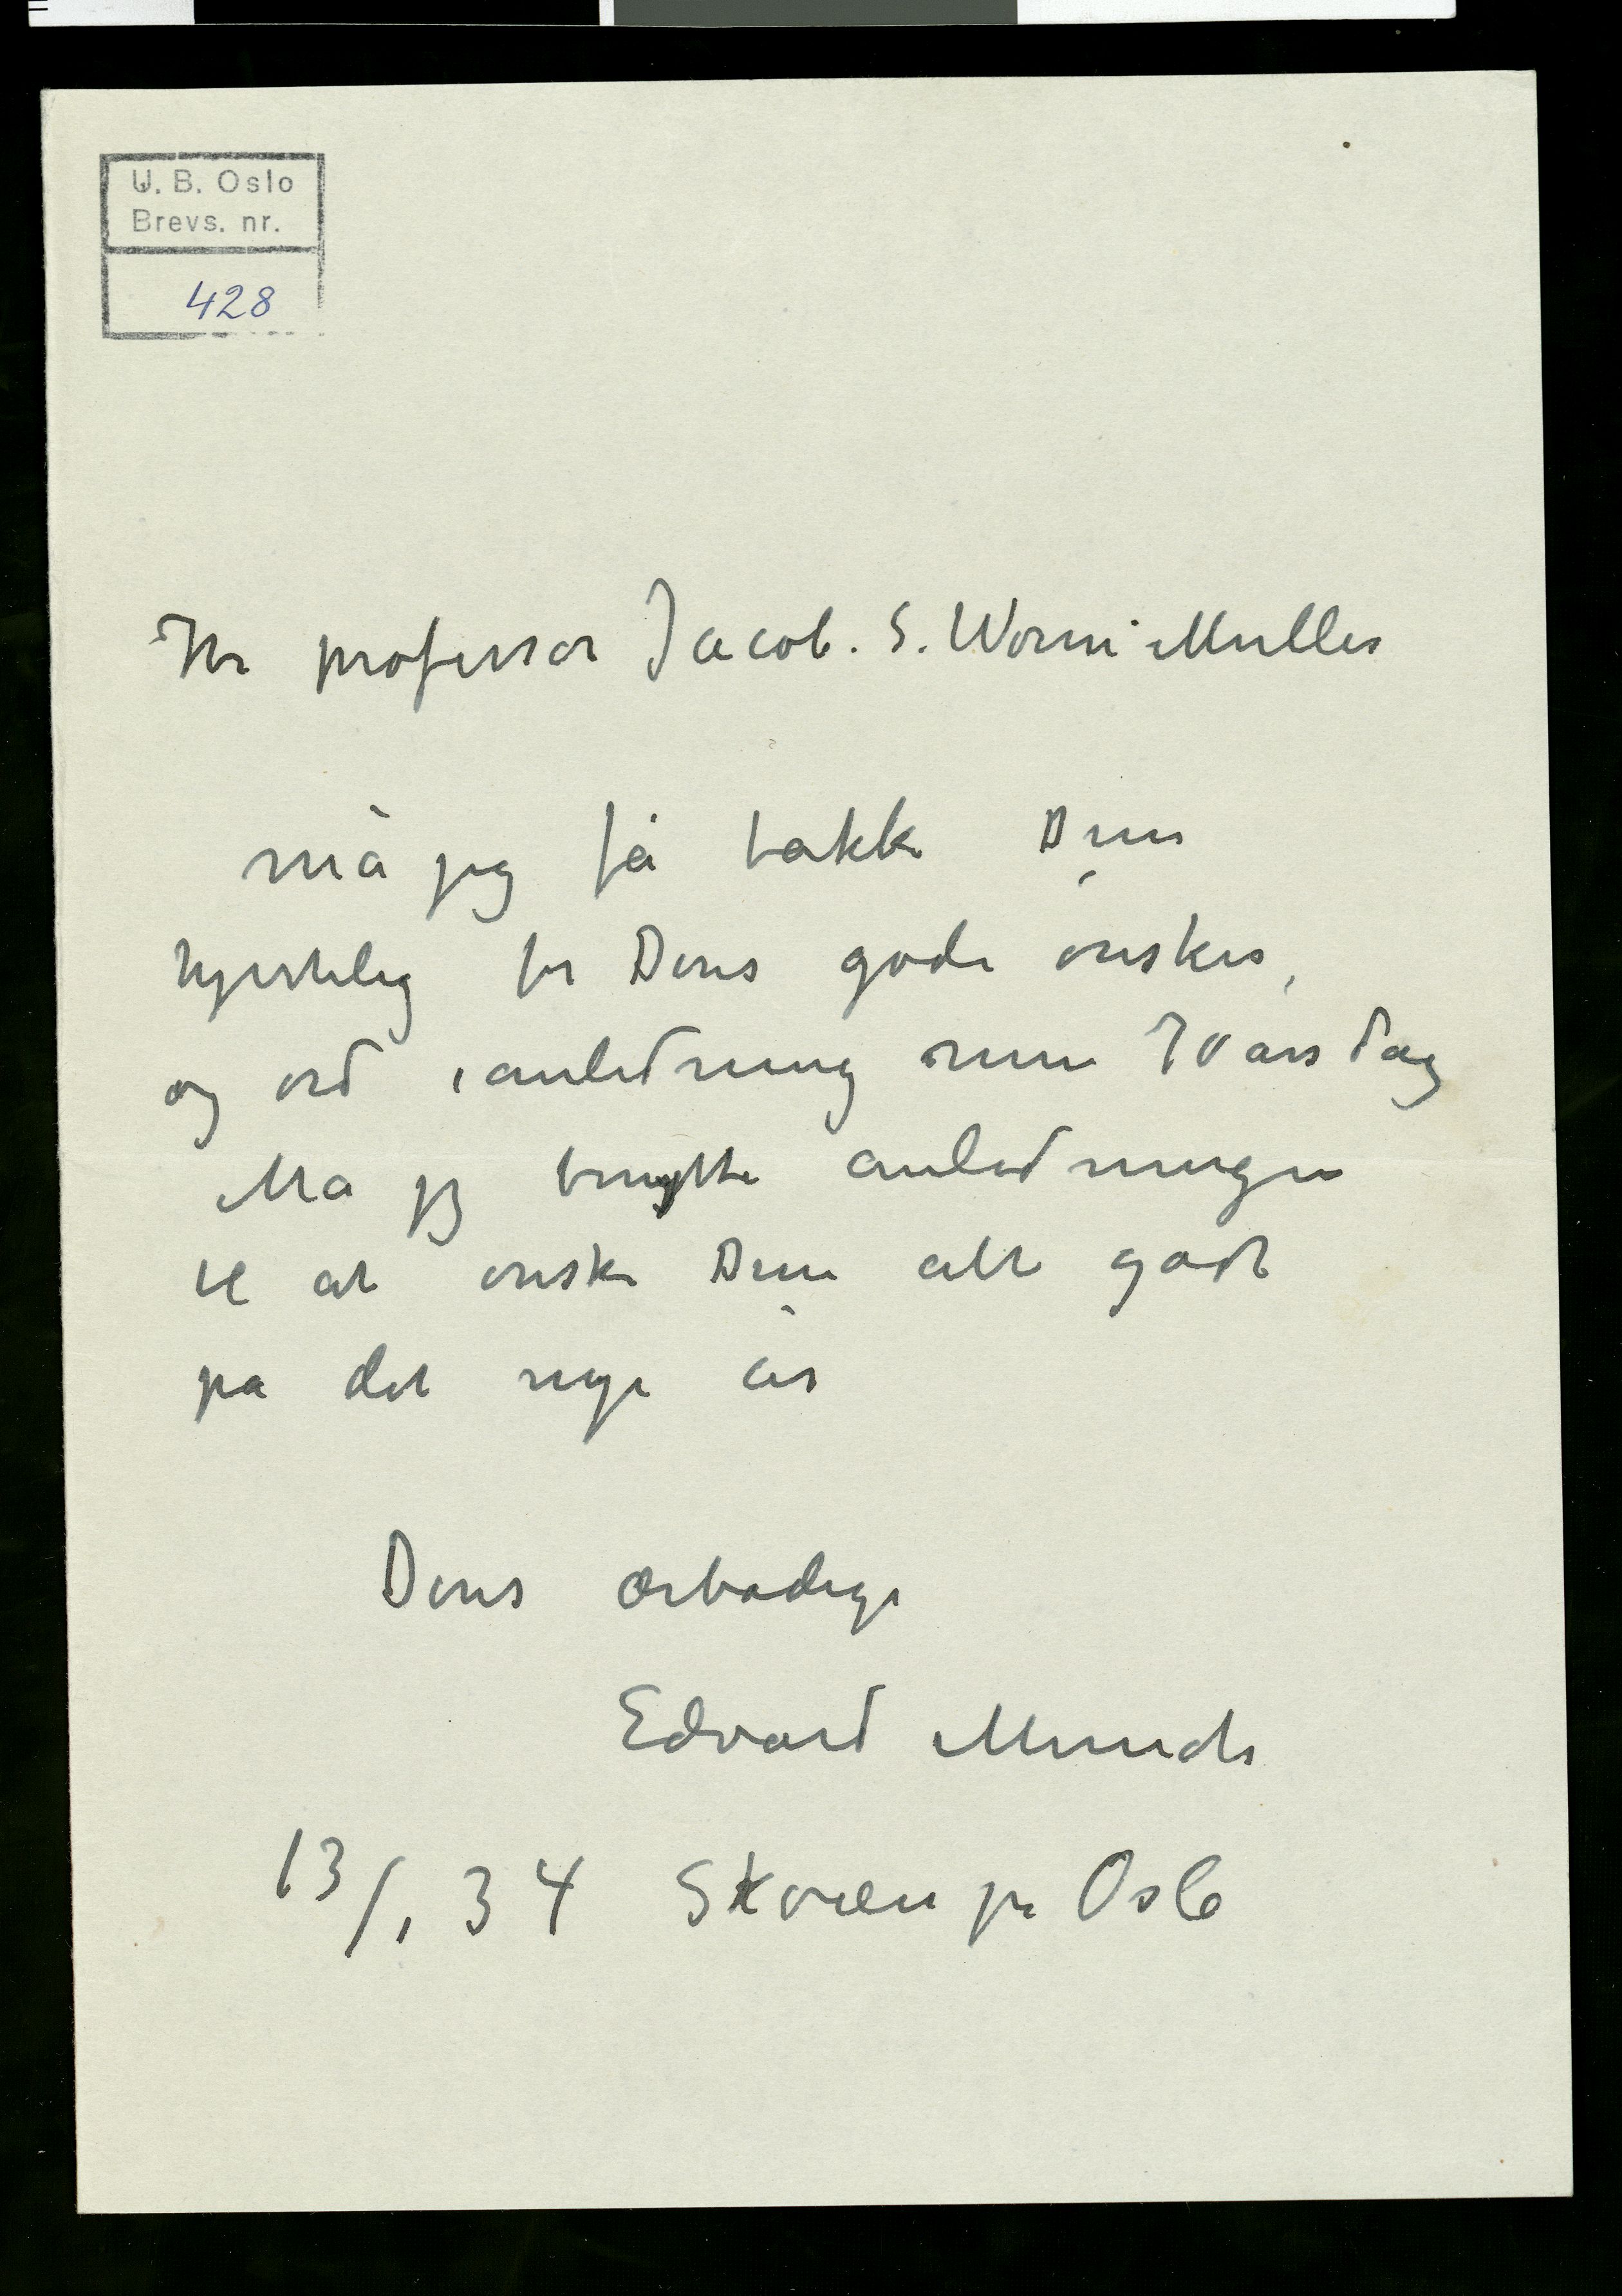 U. B. Oslo
Brevs. nr.
428
Hr professor Jacob. S. Worm Muller
må jeg få takke Dem
hjerteligt for Deres gode ønsker,
og ord i anledning min 70 års dag
Må jeg benytte anledningen
til at ønske Dem alt godt
på det nye år
Deres ærbødige
Edvard Munch
13/1 34 Skøien pr Oslo